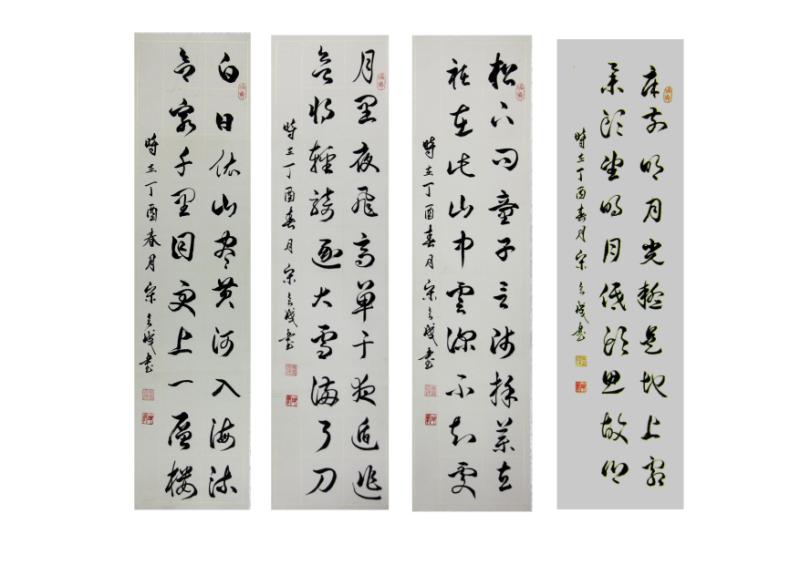 床前明月光疑是地上霜
举头望明月低头思故乡
時在丁酉春月宋书
松下问童子言师採药去
祗在此山中雲深不知处
時在丁酉春月宋书
月黑夜飞高单于夜遁逃
欲将輕騎逐大雪满弓刀
時在丁酉春月宋书
白日依山尽黄河入海流
欲穷千里目更上一层楼
時在丁酉春月宋书